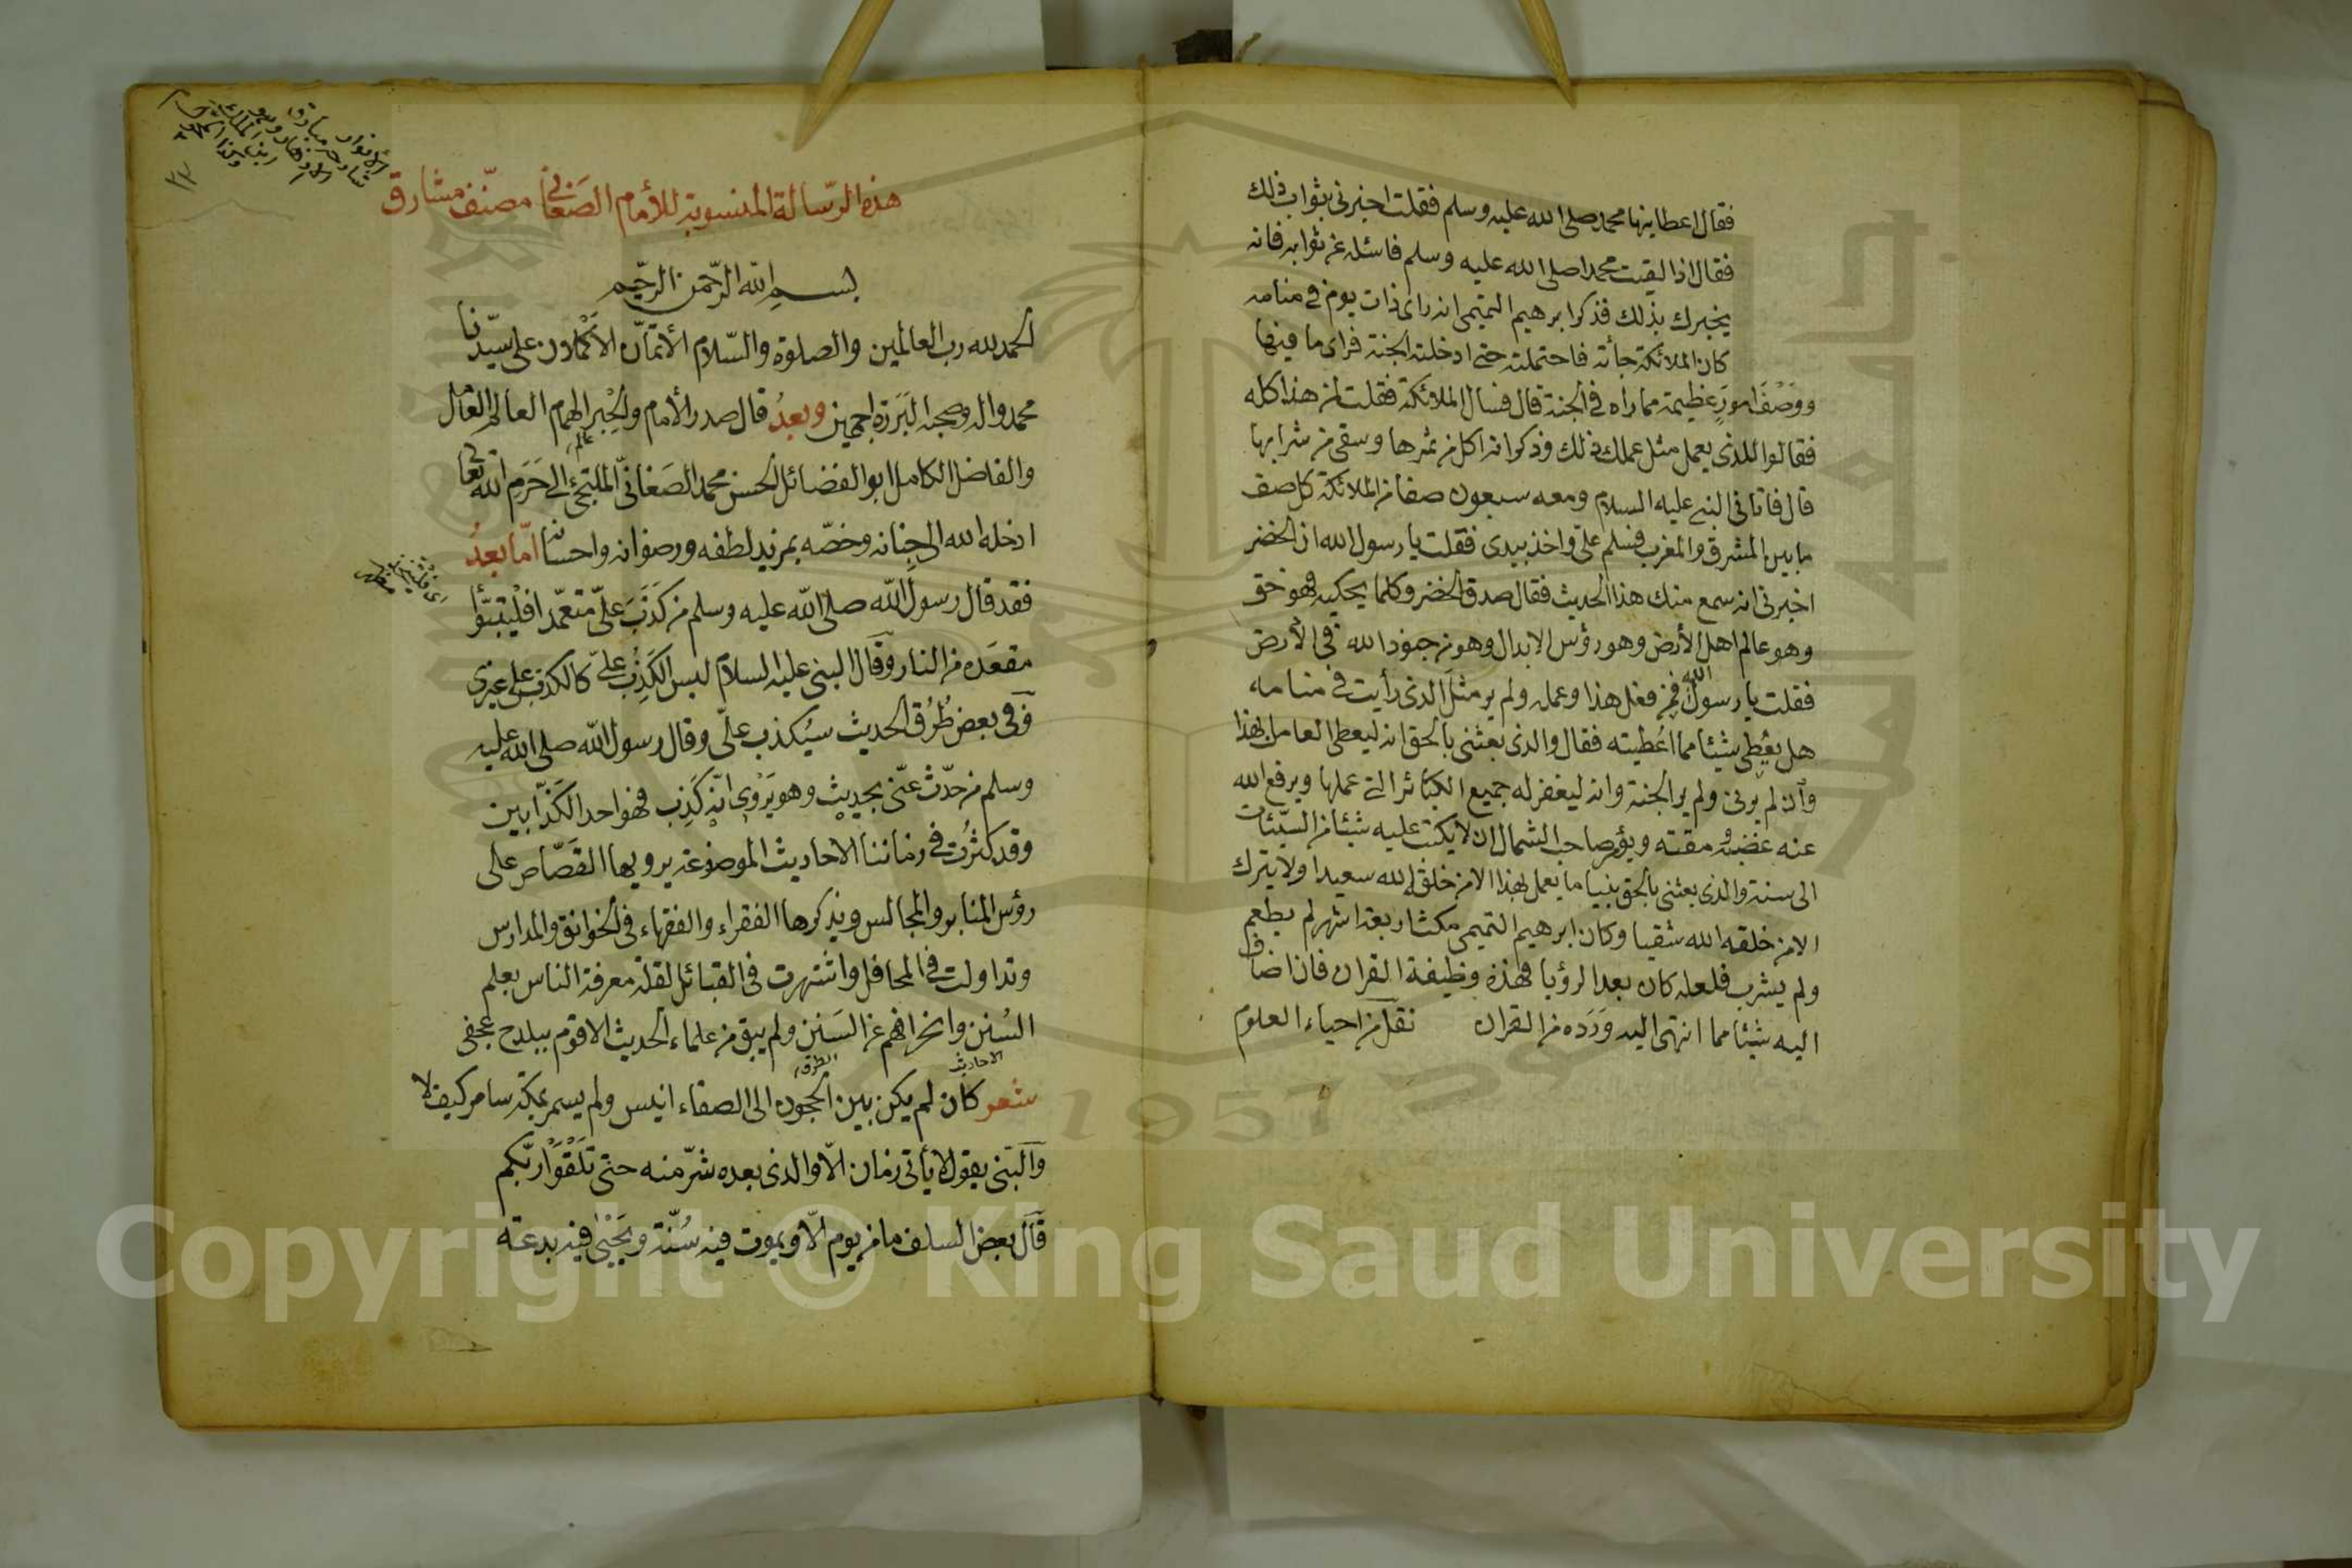 فقال اعطانيها محمد صلى الله عليه وسلم فقلت اخبرنى بثواب ذلك
فقال اذا لقيت محمدا صلى الله عليه وسلم فاسئله عن ثوابه فانه
يخبرك بذلك فذكر ابرهيم التميمى انه راى ذات يوم فى منامه
كان الملائكة جأته فاحتملته حتى ادخلته الجنة فراى ما فيها
ووَصَفَ امورٍ عظيمة مما راه فى الجنة قال فسال الملائكة فقلت لمن هذا كله
فقالوا للذى يعمل مثل عملك ذلك وذكر انه اكل من ثمرها وسقى من شرابها
قال فاتانى النبى عليه السلام ومعه سبعون صفا من الملائكة كل صف
ما بين المشرق والمغرب فسلم على واخذ بيدى فقلت يا رسول الله ان الخضر
اخبرنى انه سمع منك هذا الحديث فقال صدق الخضر وكلما يحكيه فهو حق
وهو عالم اهل الأرض وهو رؤس الابدال وهو من جنود الله فى الأرض
فقلت يا رسول الله فمن فعل هذا وعمله ولم ير مثل الذى رأيت فى منامه
هل يعطى شيئا مما اعطيته فقال والذى بعثنى بالحق انه ليعطى العامل بهذا
وان لم يرنى ولم ير الجنة وانه ليغفر له جميع الكبائر التى عملها ويرفع الله
عنه غضبه ومقته ويؤمر صاحب الشمال ان لا يكتب عليه شيئا من السيئات
الى سنة والذى بعثنى بالحق نبيا ما يعمل بهذا الا من خلقه الله سعيدا ولا يترك
الا من خلقه الله شقيا وكان ابرهيم التميمى مكث اربعة اشهر لم يطعم
ولم يشرب فلعله كان بعد الرؤيا فهذه وظيفة القران فان اضاف
اليه شيئا مما انتهى اليه وَرَدَه من القران نقل من احياء العلوم
هذه الرّسالة المنسوبة للأمام الصَغَانى مصنّف مشارق
الأنوار
٣٢
بسم الله الرّحمن الرّحيم
الحمد لله رب العالمين والصلوة والسّلام الأتمّان الأكملان على سيّدنا
محمد واله وصحبه البَرَرة اجمعين وبعدُ قال صدر الأمام والحِبر الهمام العالم العامل
والفاضل الكامل ابو الفضائل الحسن محمد الصَغانىّ الملتجئ الى حَرَم الله تعالى
ادخله الله الى جِنانه وخصّه بمزيد لطفه ورضوانه واحسانه امّا بعدُ
فقد قال رسول الله صلى الله عليه وسلم من كَذَبَ علىّ متعمّدا فليتبوّأ
مقعَده من النار وقال النبى عليه السلام ليس الكَذِبُ علىّ كالكذب على غيرى
وفى بعض طُرُق الحديث سيُكذب علىّ وقال رسول الله صلى الله عليه
وسلم من حدّث عنّى بحديث وهو يَرَوْى انّه كَذِب فهو احد الكَذّابين
وقد كثُرت فى زماننا الاحاديث الموضوعة يرويها القَصّاص على
رؤس المنابر والمجالس ويذكرها الفقراء والفقهاء فى الخوانق والمدارس
وتداولت فى المحافل واشتهرت فى القبائل لقلة معرفة الناس بعلم
السُنن وانحرافهم عن السَنن ولم يبق من علماء الحديث الا قوم ببلدح عجفى
الاحاديث
شعر كان لم يكن بين الحجون الى الصفاء انيس ولم يسمر بمكة سامر كيف لا
والنبى يقول لا يأتى زمان الّا والذى بعده شرّ منه حتى تَلقَوْا ربّكم
قال بعض السلف ما من يوم الّا ويموت فيه سُنّة ويَحْيَى فيه بدعة